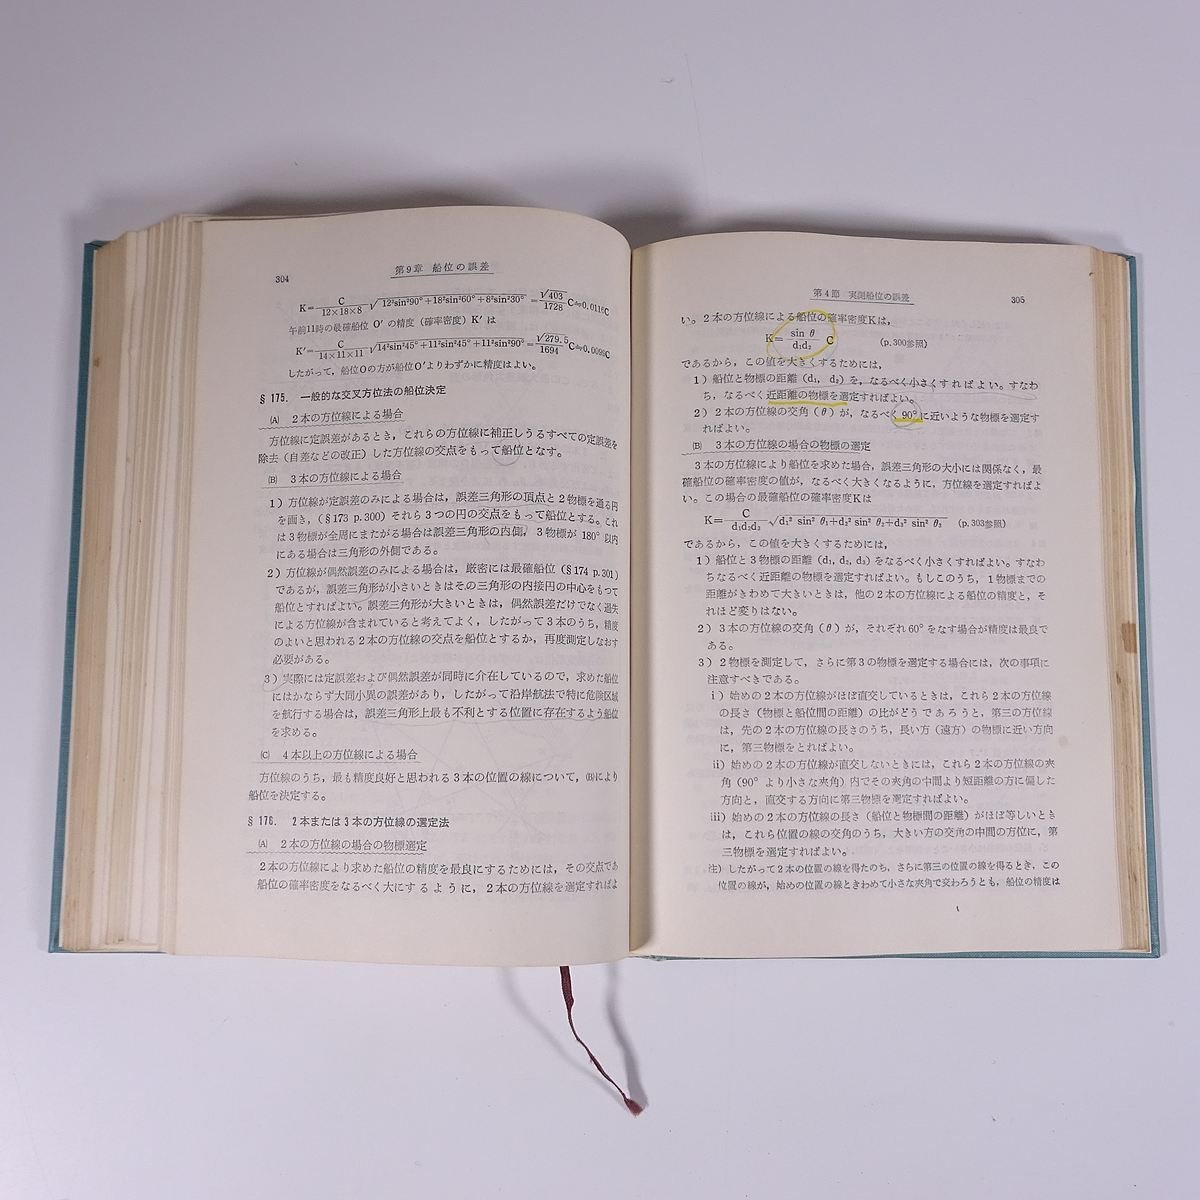 304
第9章 船位の誤差
K= C/12×18×8 √12²sin²90°+18²sin²60°+8²sin²30° = √403/1728 C≒0.0116C
午前11時の最確船位 O′ の精度（確率密度）K′ は
K′= C/14×11×11 √14²sin²45°+11²sin²45°+11²sin²90° = √279.5/1694 C≒0.0099C
したがって，船位Oの方が船位O′よりわずかに精度はよい。
§ 175. 一般的な交叉方位法の船位決定
(A) 2本の方位線による場合
方位線に定誤差があるとき，これらの方位線に補正しうるすべての定誤差を
除去（自差などの改正）した方位線の交点をもって船位となす。
(B) 3本の方位線による場合
1）方位線が定誤差のみによる場合は，誤差三角形の頂点と2物標を通る円
を画き，(§173 p.300) それら3つの円の交点をもって船位とする。これ
は3物標が全周にまたがる場合は誤差三角形の内側，3物標が 180° 以内
にある場合は三角形の外側である。
2）方位線が偶然誤差のみによる場合は，厳密には最確船位 (§174 p.301)
であるが，誤差三角形が小さいときはその三角形の内接円の中心をもって
船位とすればよい。誤差三角形が大きいときは，偶然誤差だけでなく過失
による方位線が含まれていると考えてよく，したがって3本のうち，精度
のよいと思われる2本の方位線の交点を船位とするか，再度測定しなおす
必要がある。
3）実際には定誤差および偶然誤差が同時に介在しているので，求めた船位
にはかならず大同小異の誤差があり，したがって沿岸航法で特に危険区域
を航行する場合は，誤差三角形上最も不利とする位置に存在するよう船位
を求める。
(C) 4本以上の方位線による場合
方位線のうち，最も精度良好と思われる3本の位置の線について，(B)により
船位を決定する。
§ 176. 2本または3本の方位線の選定法
(A) 2本の方位線の場合の物標選定
2本の方位線により求めた船位の精度を最良にするためには，その交点であ
船位の確率密度をなるべく大にするように，2本の方位線を選定すればよ
第4節 実測船位の誤差
305
い。2本の方位線による船位の確率密度Kは，
K= sin θ/d₁d₂ C （p.300参照）
であるから，この値を大きくするためには，
1）船位と物標の距離（d₁, d₂）を，なるべく小さくすればよい。すなわ
ち，なるべく近距離の物標を選定すればよい。
2）2本の方位線の交角（θ）が，なるべく 90° に近いような物標を選定す
ればよい。
(B) 3本の方位線の場合の物標の選定
3本の方位線により船位を求めた場合，誤差三角形の大小には関係なく，最
確船位の確率密度の値が，なるべく大きくなるように，方位線を選定すればよ
い。この場合の最確船位の確率密度Kは
K= C/d₁d₂d₃ √d₁² sin² θ₁+d₂² sin² θ₂+d₃² sin² θ₃ （p.303参照）
であるから，この値を大きくするためには，
1）船位と3物標の距離（d₁, d₂, d₃）をなるべく小さくすればよい。すなわ
ちなるべく近距離の物標を選定すればよい。もしこのうち，1物標までの
距離がきわめて大きいときは，他の2本の方位線による船位の精度と，そ
れほど変りはない。
2）3本の方位線の交角（θ）が，それぞれ60°をなす場合が精度は最良で
ある。
3）2物標を測定して，さらに第3の物標を選定する場合には，次の事項に
注意すべきである。
i）始めの2本の方位線がほぼ直交しているときは，これら2本の方位線
の長さ（物標と船位間の距離）の比がどうであろうと，第三の方位線
は，先の2本の方位線の長さのうち，長い方（遠方）の物標に近い方向
に，第三物標をとればよい。
ii）始めの2本の方位線が直交しないときには，これら2本の方位線の夾
角（90° より小さな夾角）内でその夾角の中間より短距離の方に偏した
方向と，直交する方向に第三物標を選定すればよい。
iii）始めの2本の方位線の長さ（船位と物標間の距離）がほぼ等しいとき
は，これら位置の線の交角のうち，大きい方の交角の中間の方位に，第
三物標を選定すればよい。
注）したがって2本の位置の線を得たのち，さらに第三の位置の線を得るとき，この
位置の線が，始めの位置の線ときわめて小さな夾角で交わろうとも，船位の精度は